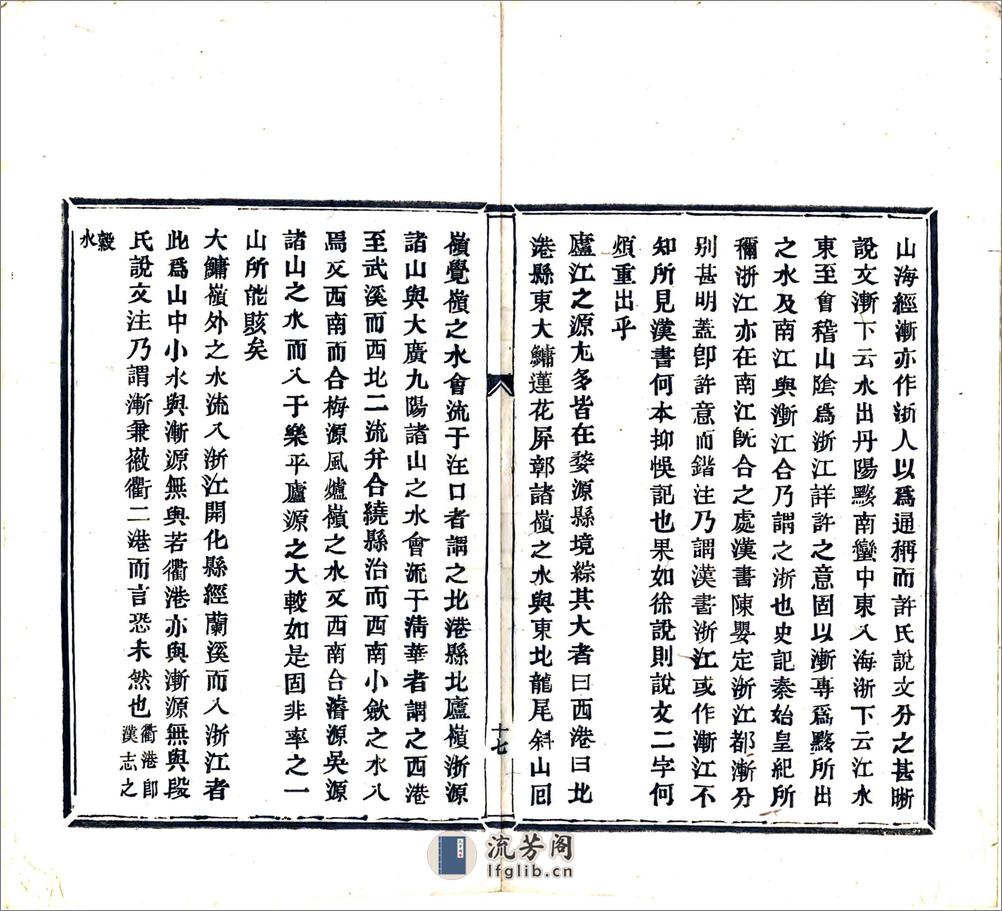 山海經漸亦作浙人以爲通稱而許氏說文分之甚晰
說文漸下云水出丹陽黟南蠻中東入海浙下云江水
東至會稽山陰爲浙江詳許之意固以漸專爲黟所出
之水及南江與漸江合乃謂之浙也史記秦始皇紀所
稱浙江亦在南江旣合之處漢書陳嬰定浙江都漸分
別甚明蓋卽許意而鍇注乃謂漢書浙江或作漸江不
知所見漢書何本抑悞記也果如徐說則說文二字何
煩重出乎
廬江之源尢多皆在婺源縣境綜其大者曰西港曰北
港縣東大鱅蓮花屏鄣諸嶺之水與東北龍尾斜山回
嶺覺嶺之水會流于汪口者謂之北港縣北廬嶺浙源
諸山與大廣九陽諸山之水會流于淸華者謂之西港
至武溪而西北二流幷合繞縣治而西南小歛之水入
焉又西南而合梅源風爐嶺之水又西南合濬源吳源
諸山之水而入于樂平廬源之大較如是固非率之一
山所能賅矣
大鱅嶺外之水流入浙江開化縣經蘭溪而入浙江者
此爲山中小水與漸源無與若衢港亦與漸源無與段
氏說文注乃謂漸兼徽衢二港而言恐未然也衢港卽漢志之
縠水
十七
流芳阁
lfglib.cn